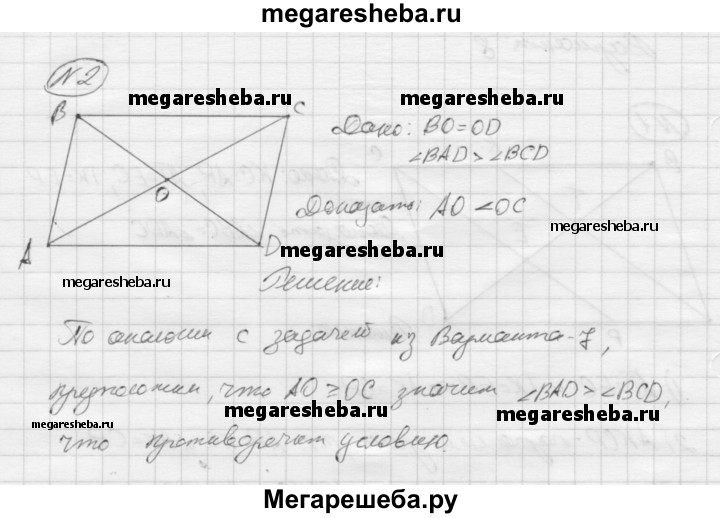 megaresheba.ru
N2
B
C
O
A
D
megaresheba.ru
megaresheba.ru
Дано: BO=OD
∠BAD>∠BCD
Доказать: AO<OC
megaresheba.ru
megaresheba.ru
Решение:
По аналогии с задачей из Варианта-7,
предположим, что AO≥OC значит ∠BAD>∠BCD,
megaresheba.ru
megaresheba.ru
megaresheba.ru
что противоречит условию.
Мегарешеба.ру